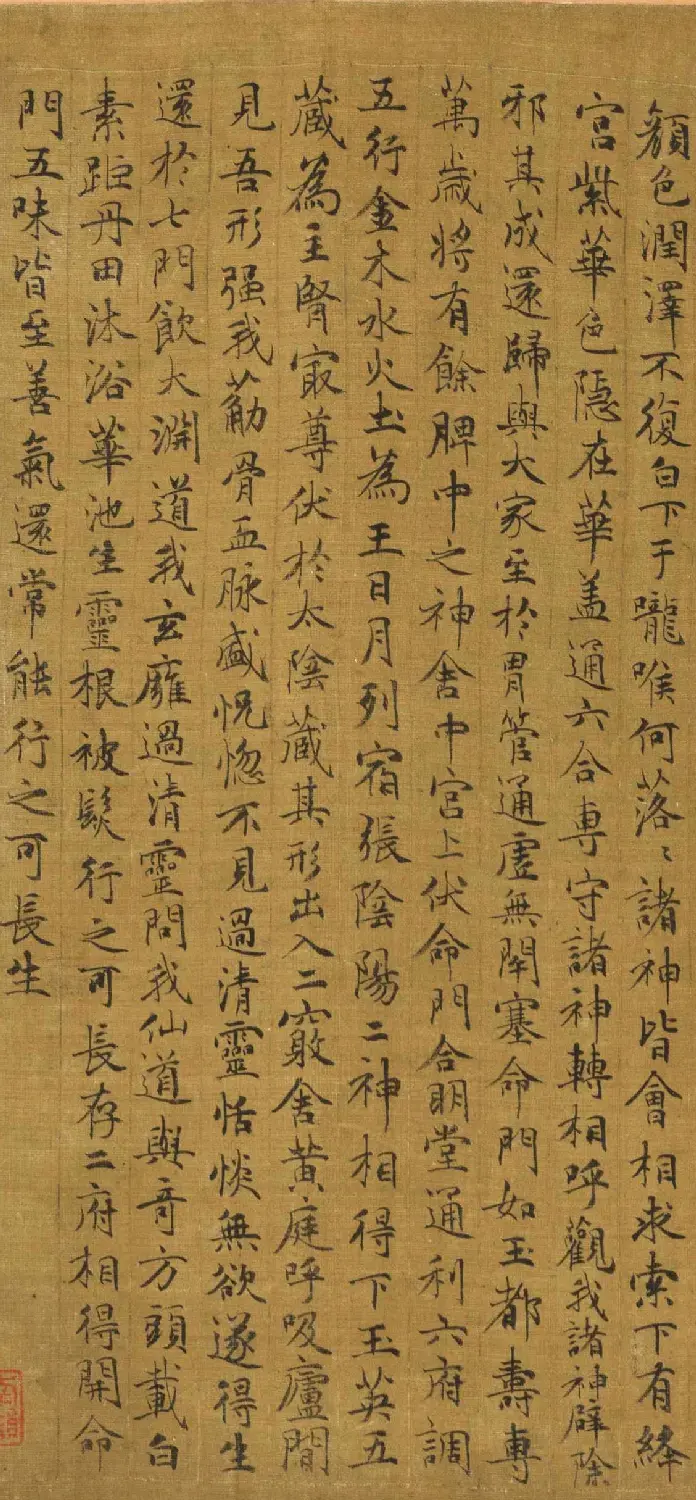 顏色潤澤不復白下于嚨喉何落〻諸神皆會相求索下有絳
宮紫華色隱在華盖通六合専守諸神轉相呼觀我諸神辟除
邪其成還歸與大家至於胃管通虛無閇塞命門如玉都壽専
萬歲將有餘脾中之神舍中宮上伏命門合明堂通利六府調
五行金木水火土為王日月列宿張陰陽二神相得下玉英五
藏為主腎寂尊伏於太陰藏其形出入二竅舍黃庭呼吸廬間
見吾形强我葪骨血脉盛怳惚不見過清靈恬惔無欲遂得生
還於七門飲大渊道我玄廱過清靈問我仙道與竒方頭載白
素距丹田沐浴華池生靈根被髮行之可長存二府相得開命
門五味皆至善氣還常能行之可長生